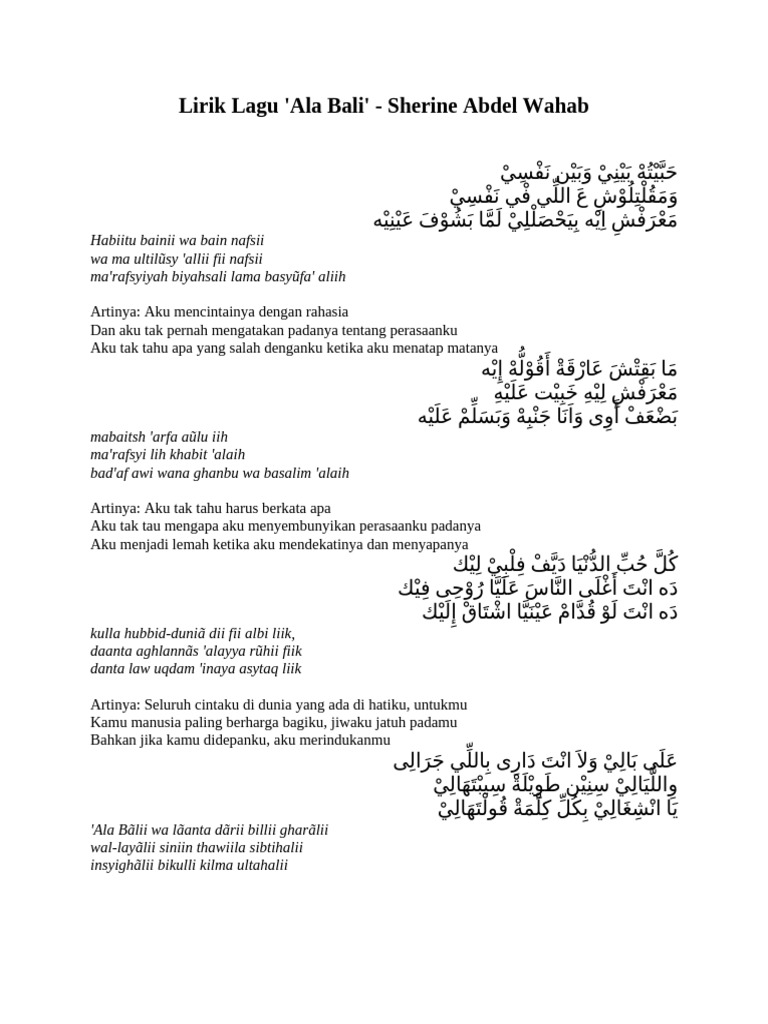 Lirik Lagu 'Ala Bali' - Sherine Abdel Wahab
حَبَّيْتُهْ بَيْنِيْ وَبَيْن نَفْسِيْ
وَمَقُلْتِلُوْش عَ اللِّي فْي نَفْسِيْ
مَعْرَفْشِ اِيْه بِيَحْصَلْلِيْ لَمَّا بَشُوْفَ عَيْنِيْه
Habiitu bainii wa bain nafsii
wa ma ultilũsy 'allii fii nafsii
ma'rafsyiyah biyahsali lama basyũfa' aliih
Artinya: Aku mencintainya dengan rahasia
Dan aku tak pernah mengatakan padanya tentang perasaanku
Aku tak tahu apa yang salah denganku ketika aku menatap matanya
مَا بَقِتْشَ عَارْفَةْ أَقُوْلُّهْ إِيْه
مَعْرَفْشِ لِيْهِ خَبِيْت عَلَيْهِ
بَضْعَفْ أَوِى وَاَنَا جَنْبِهْ وَبَسَلِّمْ عَلَيْه
mabaitsh 'arfa aũlu iih
ma'rafsyi lih khabit 'alaih
bad'af awi wana ghanbu wa basalim 'alaih
Artinya: Aku tak tahu harus berkata apa
Aku tak tau mengapa aku menyembunyikan perasaanku padanya
Aku menjadi lemah ketika aku mendekatinya dan menyapanya
كُلَّ حُبِّ الدُّنْيَا دَيَّفْ فِلْبِيْ لِيْك
دَه انْتَ أَغْلَى النَّاسَ عَلَيَّا رُوْحِى فِيْك
دَه انْتَ لَوْ قُدَّامْ عَيْنَيَّا اشْتَاقْ إِلَيْك
kulla hubbid-duniã dii fii albi liik,
daanta aghlannãs 'alayya rũhii fiik
danta law uqdam 'inaya asytaq liik
Artinya: Seluruh cintaku di dunia yang ada di hatiku, untukmu
Kamu manusia paling berharga bagiku, jiwaku jatuh padamu
Bahkan jika kamu didepanku, aku merindukanmu
عَلَى بَالِيْ وَلاَ انْتَ دَارِى بِاللِّي جَرَالِى
وِاللَّيَالِيْ سِنِيْن طَوِيْلَةْ سِيِبْتَهَالِيْ
يَا انْشِغَالِيْ بِكُلِّ كِلْمَةْ قُولْتَهَالِيْ
'Ala Bãlii wa lãanta dãrii billii gharãlii
wal-layãlii siniin thawiila sibtihalii
insyighãlii bikulli kilma ultahalii